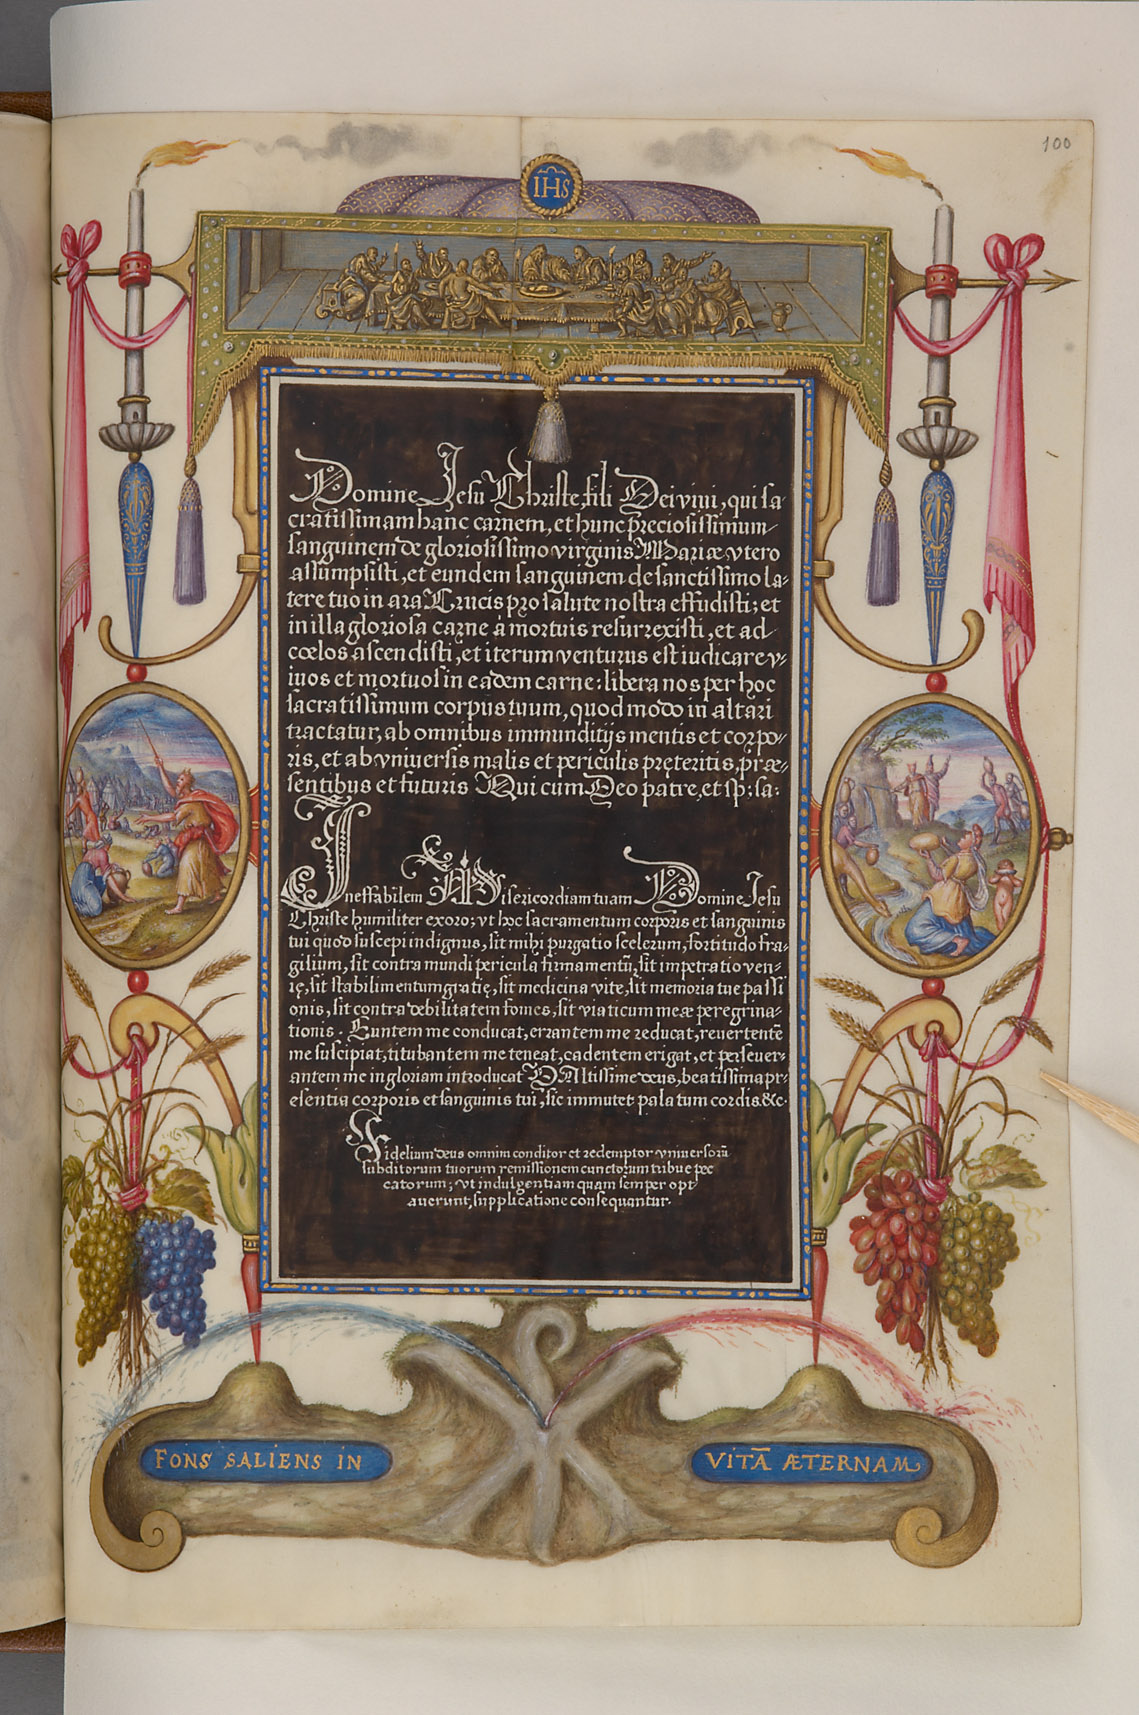 100
IHS
Domine Jesu Christe, fili Dei vivi, qui sa-
cratissimam hanc carnem, et hunc preciosissimum
sanguinem de gloriosissimo virginis Mariæ vtero
assumpsisti, et eundem sanguinem de sanctissimo la-
tere tuo in ara Crucis pro salute nostra effudisti; et
in illa gloriosa carne à mortuis resurrexisti, et ad
cœlos ascendisti, et iterum venturus est iudicare v-
iuos et mortuos in eadem carne: libera nos per hoc
sacratissimum corpus tuum, quod modo in altari
tractatur, ab omnibus immunditijs mentis et corpo-
ris, et ab vniuersis malis et periculis pręteritis, præ-
sentibus et futuris Qui cum Deo patre, et sp: sa:
Ineffabilem Misericordiam tuam Domine Jesu
Christe humiliter exoro; vt hoc sacramentum corporis et sanguinis
tui quod suscepi indignus, sit mihi purgatio scelerum, fortitudo fra-
gilium, sit contra mundi pericula firmamentũ, sit impetratio ven-
ię, sit stabilimentum gratię, sit medicina vite, sit memoria tue passi
onis, sit contra debilitatem fomes, sit viaticum meæ peregrina-
tionis. Euntem me conducat, errantem me reducat, reuertentẽ
me suscipiat, titubantem me teneat, cadentem erigat, et perseuer-
antem me in gloriam introducat O Altissime deus, beatissima pr-
esentia corporis et sanguinis tui, sic immutet palatum cordis &c.
Fidelium deus omnim conditor et redemptor vniuersorũ
subditorum tuorum remissionem cunctorum tribue pec
catorum; vt indulgentiam quam semper opt
auerunt, supplicatione consequantur.
FONS SALIENS IN
VITĀ ÆTERNAM